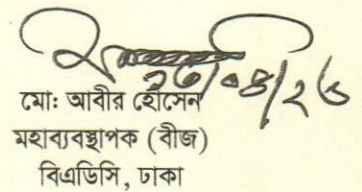 মো: আবীর হোসেন
মহাব্যবস্থাপক (বীজ)
বিএডিসি, ঢাকা